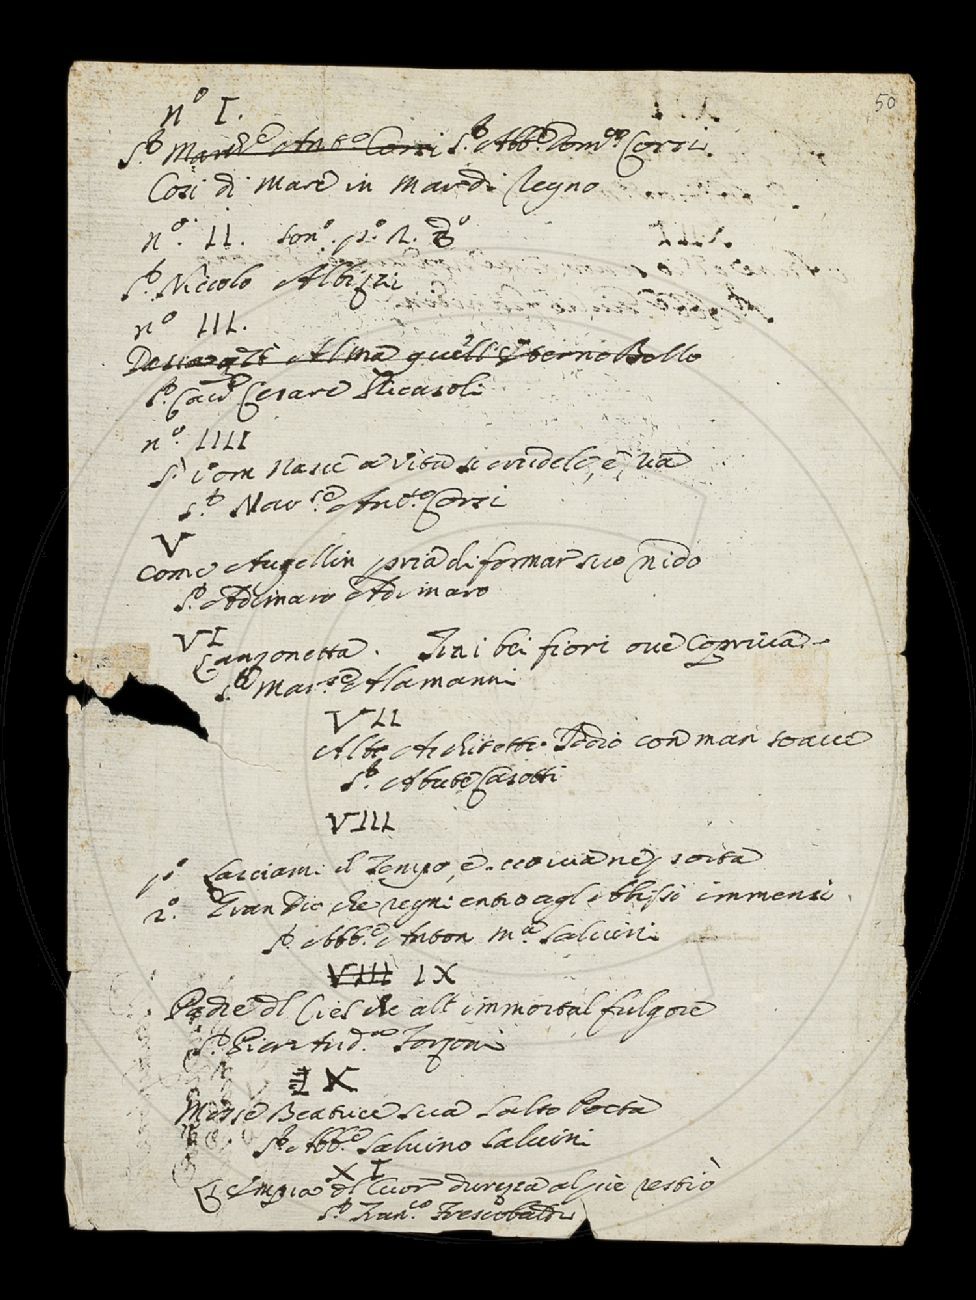 50
n.° I.
S.r March.e Ant.o Corsi S.r Abb.e Dom.co Corsi
Così di Mare in Mar di Regno
n.° II. Son.
S.r Niccolo Albizzi
n.° III.
Alma quell'Eterno Bello
S.r Cav.r Cesare Ricasoli
n.° IIII
S. l'om Nasce a vita
S.r Mar.se Ant.o Corsi
V
Come Augellin pria di formar suo nido
S.r Adimaro Adimaro
VI
Canzonetta. Tra i bei fiori ove Copriva
S.r Mar.se Alamanni
VII
Alto Architetto Iddio con man soave
S.r Abate Casotti
VIII
p.o Lasciami il Tempo, e
2.o Gran Dio che regni entro agl'Abissi immensi
S.r Abb.e Anton M.a Salvini
VIII IX
Padre del Ciel che alt immortal fulgore
S.r Pier And.a Forzoni
X
Messe Beatrice sua Salto Poeta
S.r Abb.e Salvino Salvini
XI
L'Empia del Cuor durezza al piè restiò
S.r Fran.co Frescobaldi